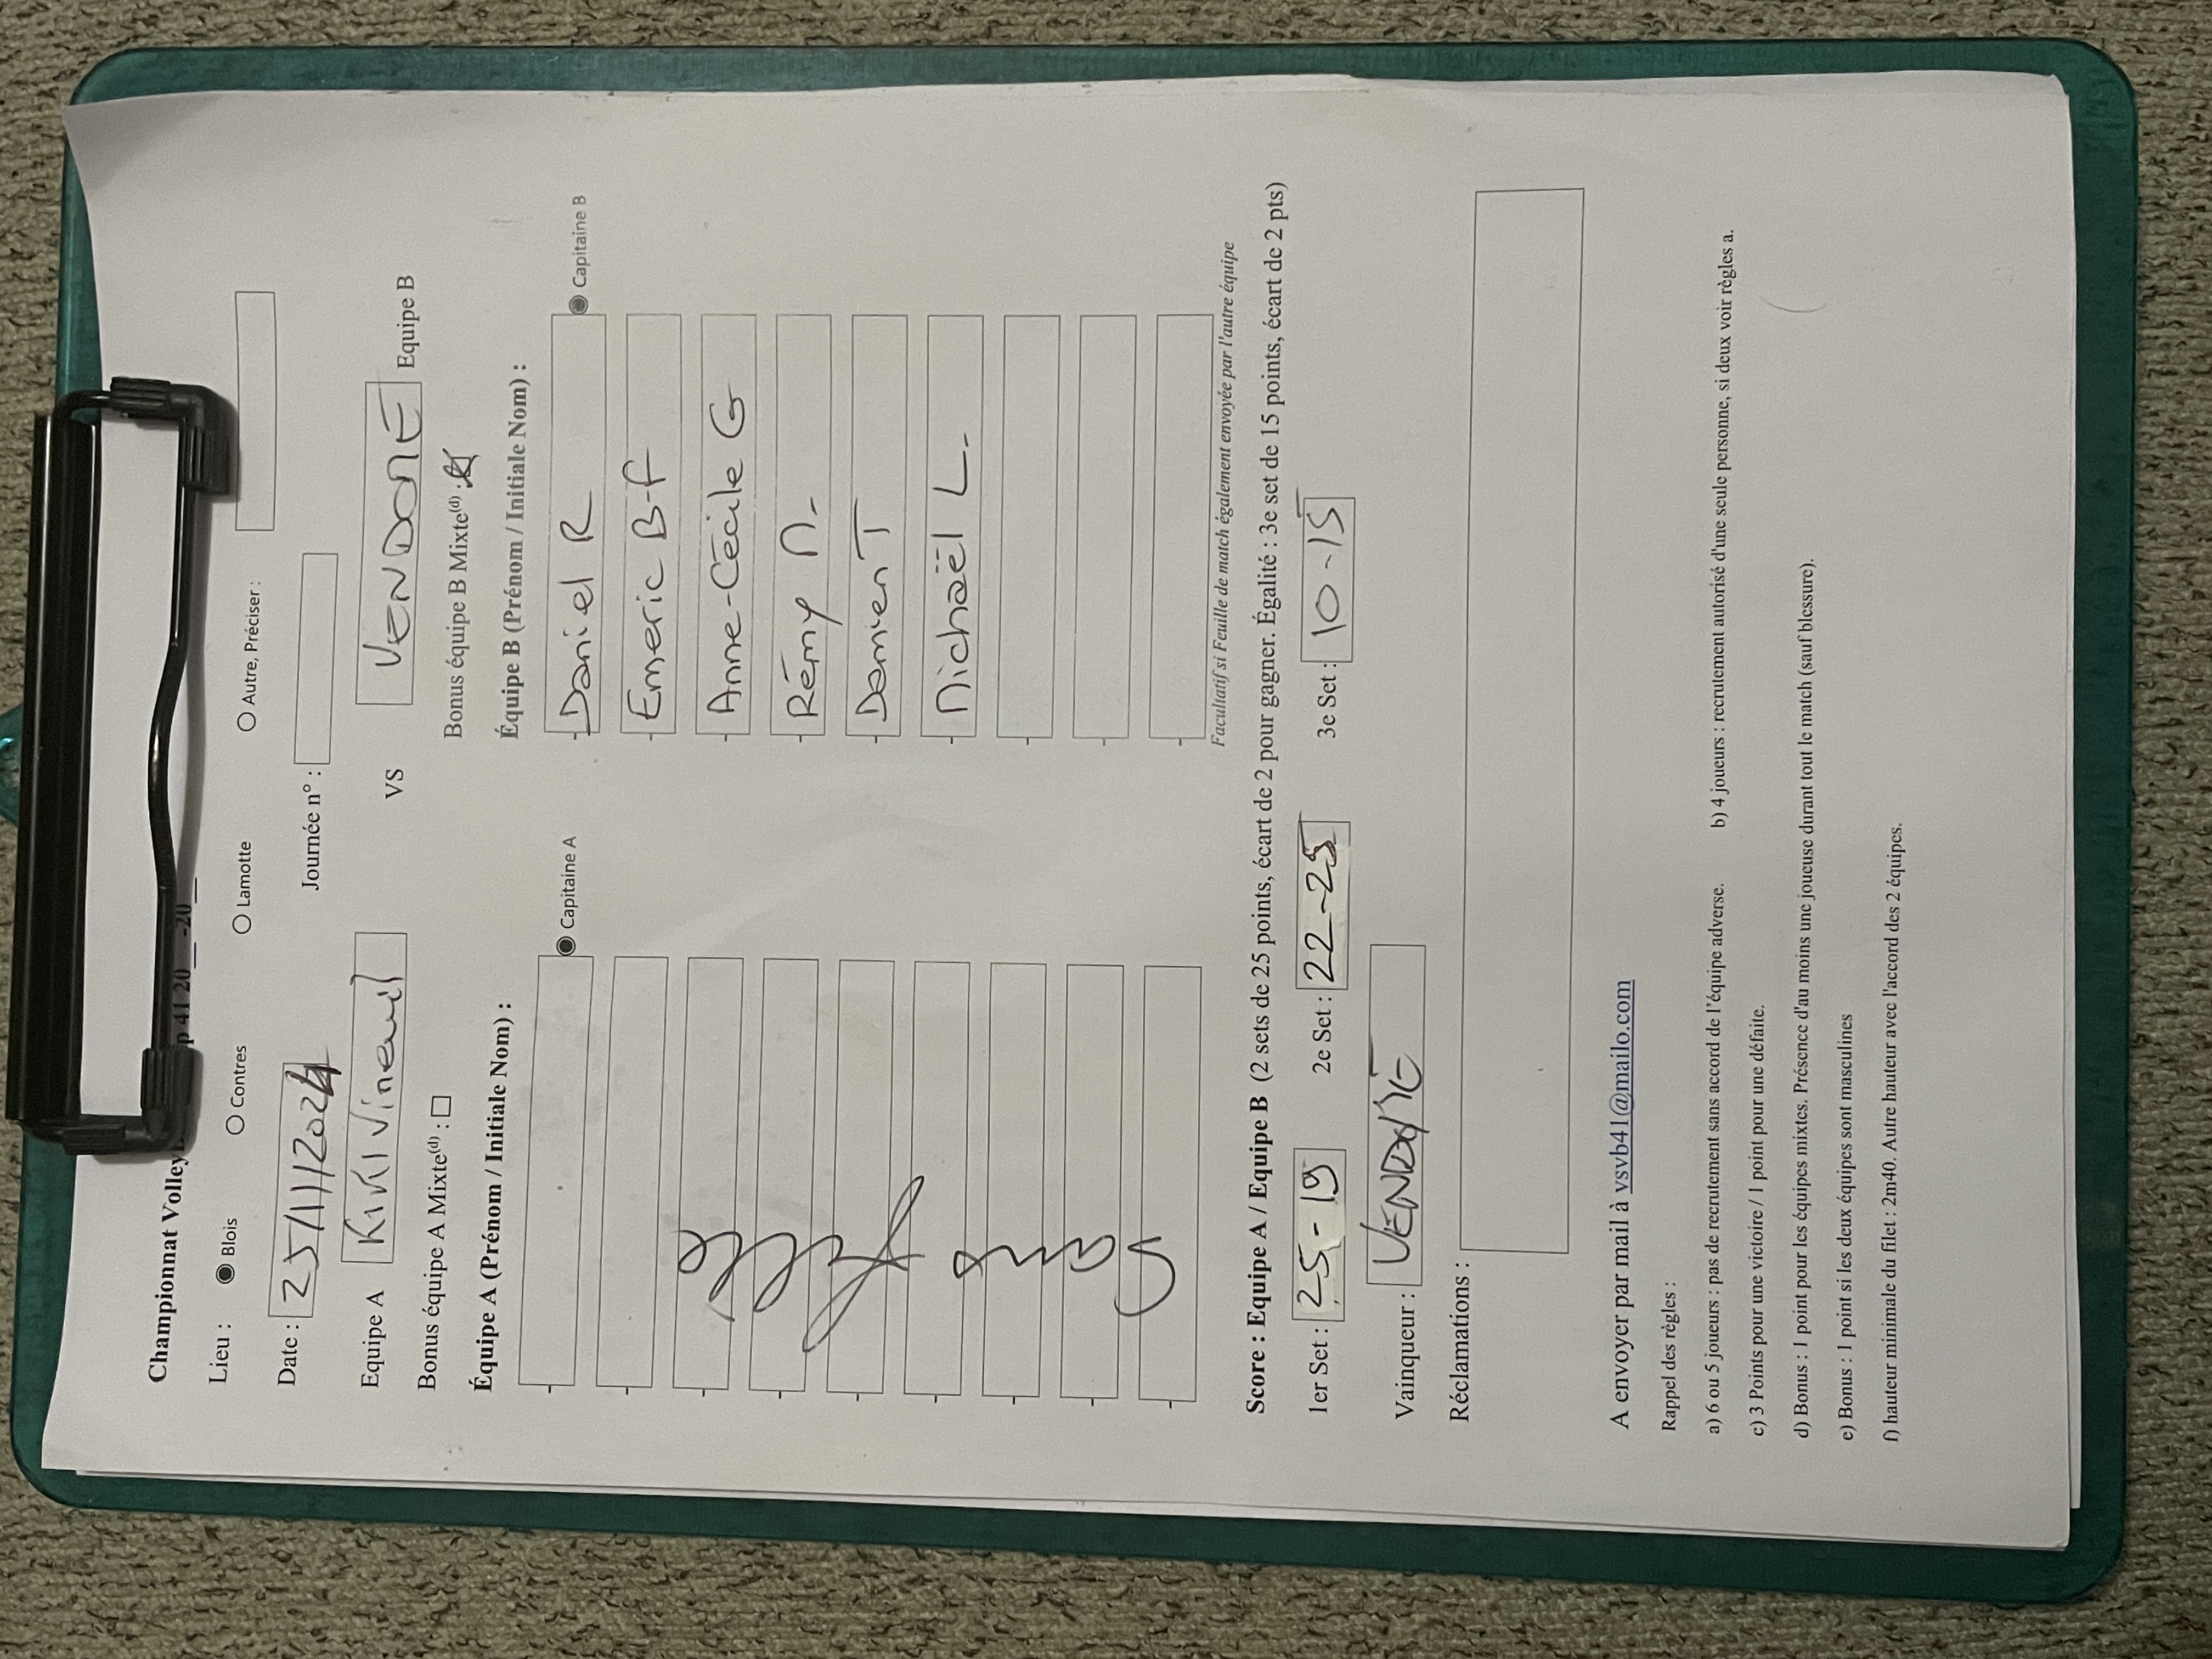 Championnat Volley p 41 20__-20__
Lieu : Blois Contres Lamotte Autre, Préciser :
Date : 25/11/2024 Journée n° :
Equipe A KIKI Vineuil VS VENDOME Equipe B
Bonus équipe A Mixte(d) : Bonus équipe B Mixte(d) :
Équipe A (Prénom / Initiale Nom) : Équipe B (Prénom / Initiale Nom) :
Capitaine A - Daniel R Capitaine B
- Emeric B-F
- Anne-Cécile G
- Rémy M.
- Damien T
- Michaël L.
Facultatif si Feuille de match également envoyée par l'autre équipe
Score : Equipe A / Equipe B (2 sets de 25 points, écart de 2 pour gagner. Égalité : 3e set de 15 points, écart de 2 pts)
1er Set : 25-19 2e Set : 22-25 3e Set : 10-15
Vainqueur : VENDOME
Réclamations :
A envoyer par mail à vsvb41@mailo.com
Rappel des règles :
a) 6 ou 5 joueurs : pas de recrutement sans accord de l'équipe adverse. b) 4 joueurs : recrutement autorisé d'une seule personne, si deux voir règles a.
c) 3 Points pour une victoire / 1 point pour une défaite.
d) Bonus : 1 point pour les équipes mixtes. Présence d'au moins une joueuse durant tout le match (sauf blessure).
e) Bonus : 1 point si les deux équipes sont masculines
f) hauteur minimale du filet : 2m40. Autre hauteur avec l'accord des 2 équipes.